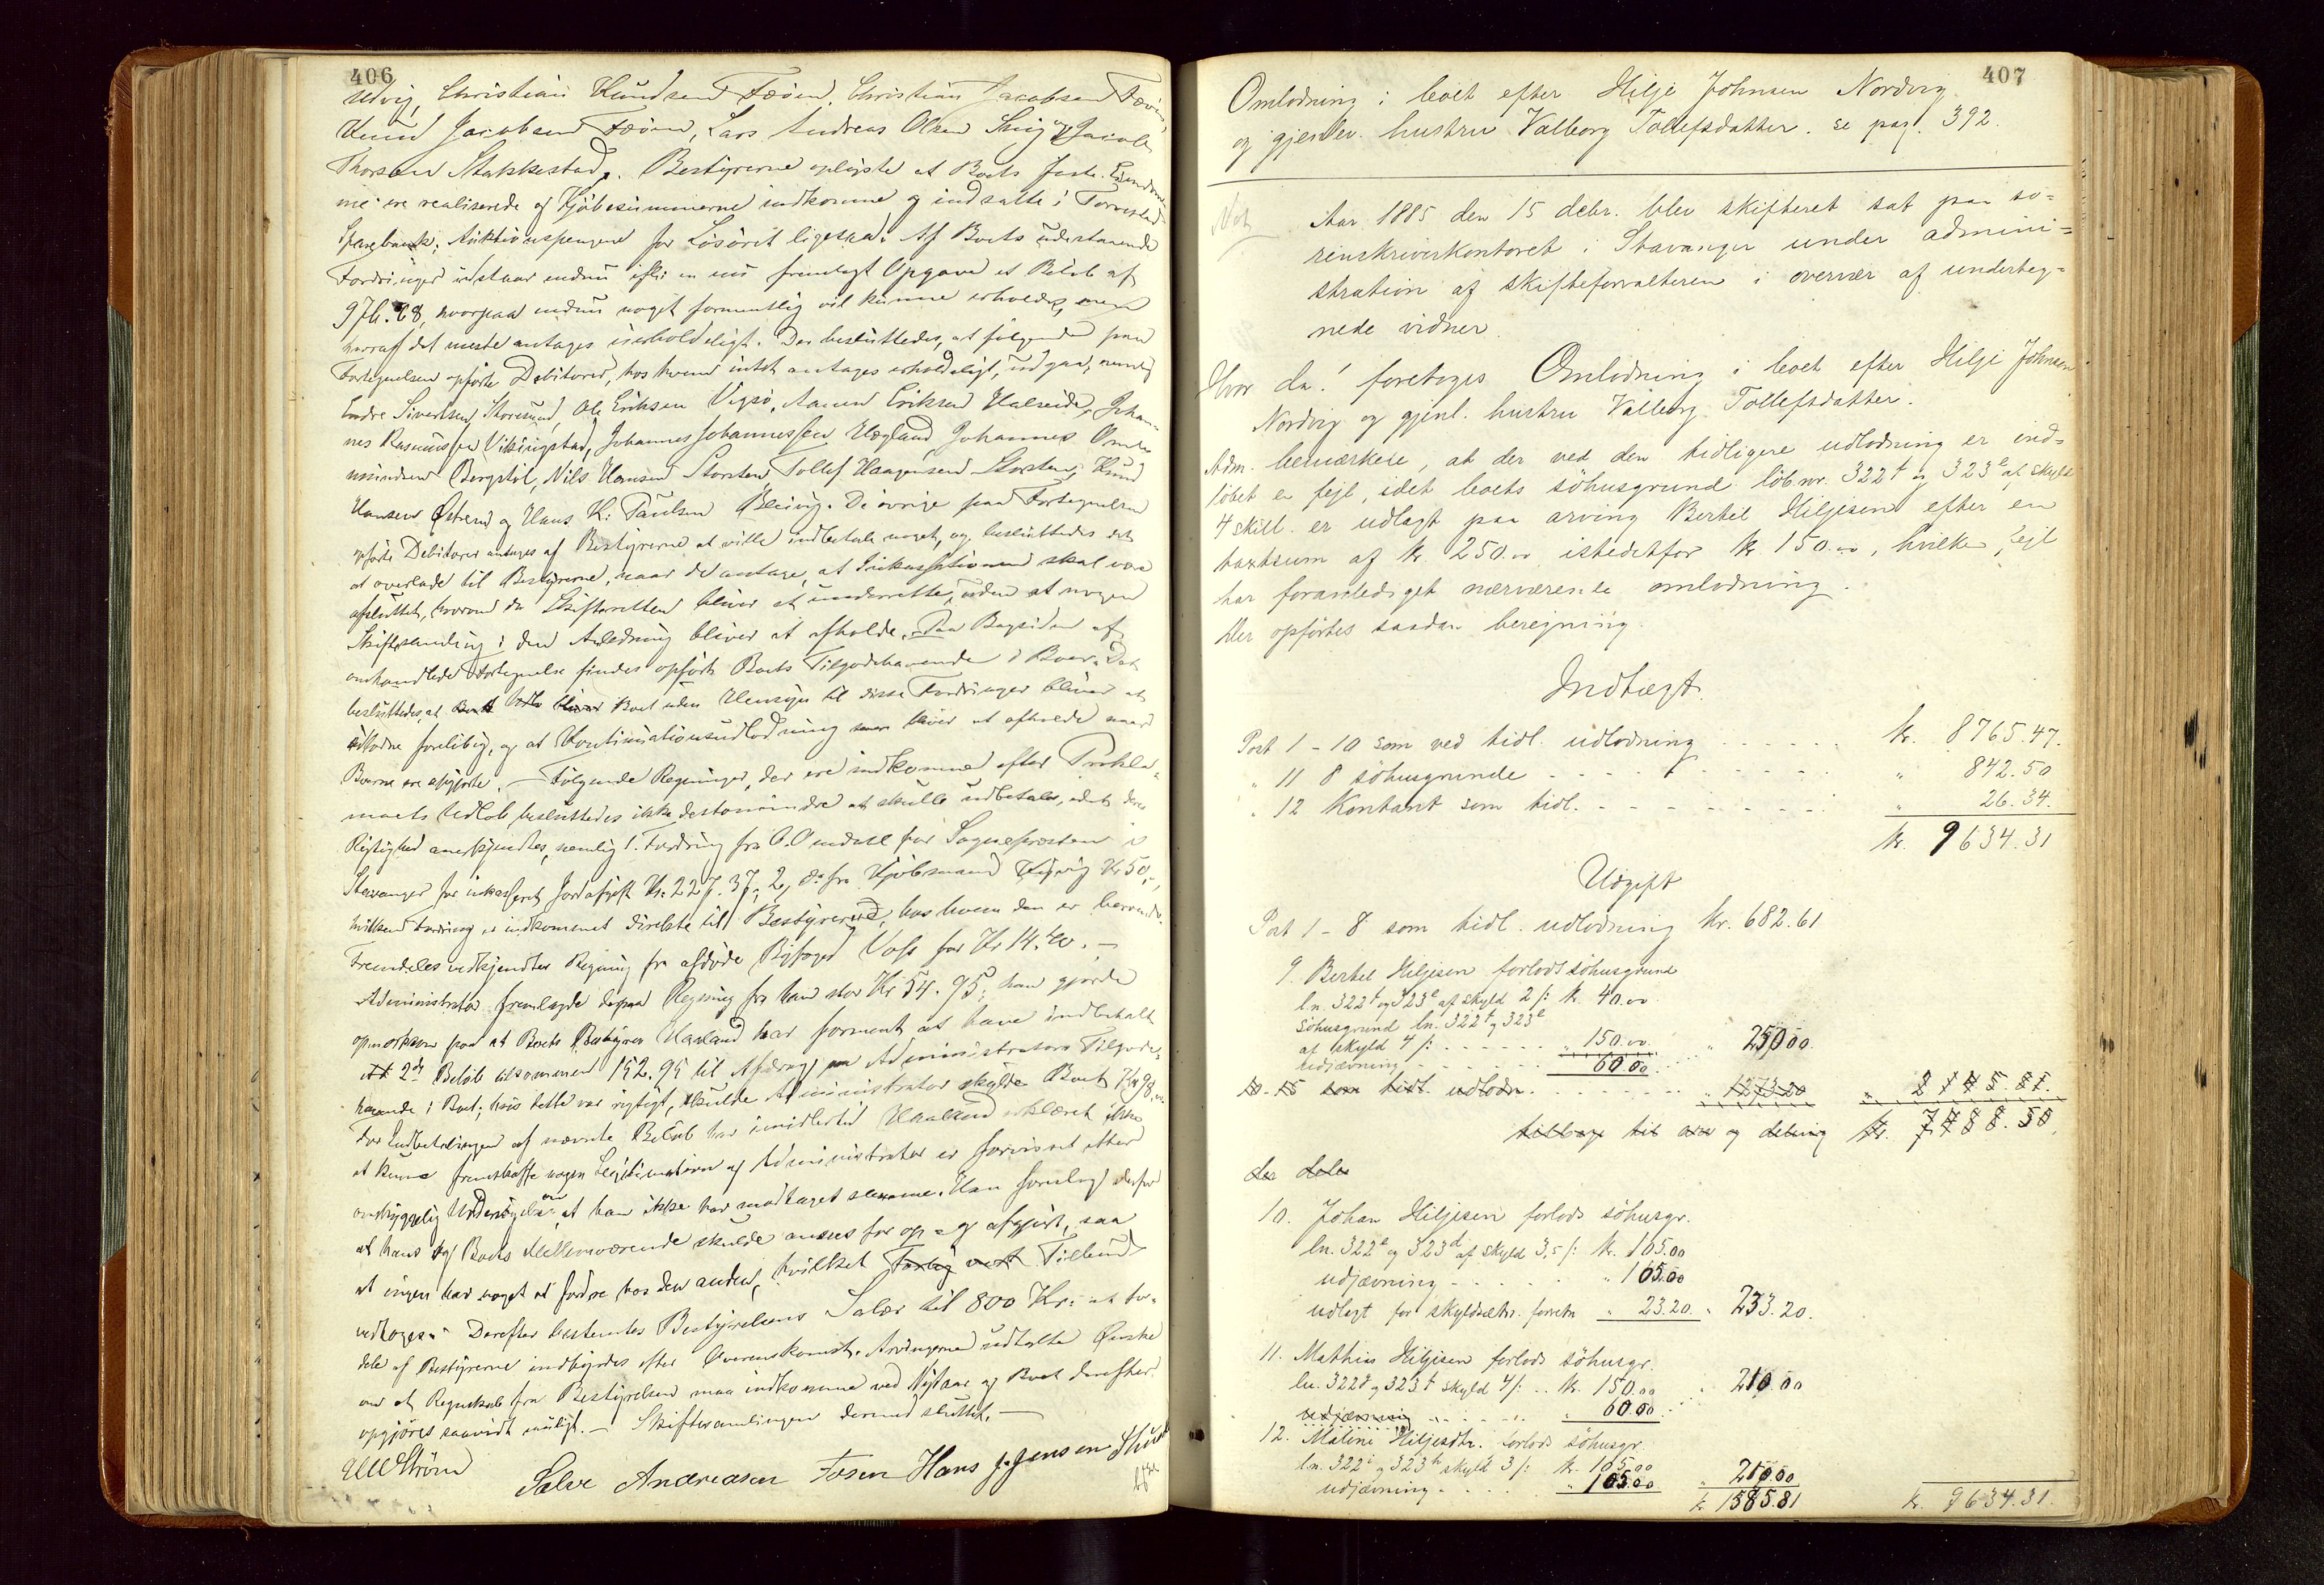 406
Udvig, Christian Knudsen Fæøen, Christian Jacobsen Fæøen,
Knud Jacobsen Fæøen, Lars Andreas Olsen og Jacob
Thorsen Stakkestad. Bestyrerne oplyste at Boets faste Eiendom-
me ere realiserede og Kjøbesummerne indkomne og indsatte i Torvestad
Sparebank; Auktionspengene for Løsøret ligesaa. Af Boets udestaaende
Fordringer udstaar endnu ifølge en nu fremlagt Opgave et Beløb af
976.28, hvorpaa endnu noget formentlig vil kunne erholdes, men
hvoraf det meste antages uerholdeligt. Der besluttedes, at følgende paa
Fortegnelsen opførte Debitorer, hos hvem intet antages erholdeligt, udgaa, nemlig
Endre Sivertsen Storesund, Ole Eriksen Vigsø, Aanen Eriksen Halseide, Johan-
nes Rasmussen Vikingstad, Johannes Johannessen Hægland, Johannes Om-
mundsen Bergstøl, Nils Hansen Storsten, Tollef Haagensen Storsten, Knud
Hansen Østrem og Hans K. Paulsen Bleivig. De øvrige paa Fortegnelsen
opførte Debitorer antages af Bestyrerne at ville indbetale noget, og besluttedes det
at overlade til Bestyrerne, naar de antage, at Inkassationen skal være
afsluttet, hvorom da Skifteretten bliver at underrette, uden at nogen
Skiftesamling i den Anledning bliver at afholde. Paa Bagsiden af
omhandlede Fortegnelse findes opført Boets Tilgodehavende i Boer. Det
besluttedes, at Boet uden Hensyn til disse Fordringer bliver at
udlodne foreløbig, og at Kontinuationsudlodning bliver at afholde naar
Boerne ere opgjorte. Følgende Regninger, der ere indkomne efter Prokla-
maets Udløb besluttedes ikke destomindre at skulle udbetales, idet deres
Rigtighed anerkjendtes, nemlig 1. Fordring fra O. Omdal for Sognepresten i
Stavanger for inkasseret Jordafgift Kr. 227.37, 2, do fra Kjøbmand Kr 50,-,
hvilken Fordring er indkommet direkte til Bestyrerne, hos hvem den er beroende.
Fremdeles vedkjendtes Regning fra afdøde Byfoged Voss for Kr 14.40. –
Administrator fremlagde depaa Regning fra ham stor Kr 54.95; han gjorde
opmærksom paa at Boets Bestyrer Haaland har forment at have indbetalt
2de Beløb tilsammen 152.95 til Afdrag paa Administrators Tilgode-
havende i Boet; hvis dette var rigtigt, skulde Administrator skylde Boet Kr 98.
For Indbetalingen af nævnte Beløb har imidlertid Haaland erklæret ikke
at kunne fremskaffe nogen Legitimation og Administrator er forvisset efter
omhyggelig Undersøgelse om, at han ikke har modtaget samme. Han foreslog derfor
at hans og Boets Mellemværende skulde ansees for op- og afgjort, saa
at ingen har noget at fordre hos den anden, hvilket Tilbud
vedtoges. Derefter bestemtes Bestyrelsens Salær til 800 Kr. at for-
dele af Bestyrerne indbyrdes efter Overenskomst. Arvingerne udtalte Ønske
om at Regnskab fra Bestyrelsen maa indkomme ved Nytaar og Boet derefter
opgjøres saavidt muligt. – Skiftesamlingen dermed sluttet. –
Salve Andreasen Fosen Hans J. Jensen
407
Omlodning i boet efter Hilje Johnsen Nordvig
og gjenlev. hustru Valborg Tollefsdatter. se pag. 392.
Aar 1885 den 15 debr. blev skifteret sat paa so-
renskriverkontoret i Stavanger under admini-
stration af skifteforvalteren i overvær af underteg-
nede vidner.
Hvor da! foretoges Omlodning i boet efter Hilje Johnsen
Nordvig og gjenl. hustru Valborg Tollefsdatter.
Adm. bemærkede, at der ved den tidligere udlodning er ind-
løbet en fejl, idet boets söhusgrund löb.nr. 322f og 323e af skyld
4 skill er udlagt paa arving Bertel Hiljesen efter en
taxtsum af kr. 250.00 istedetfor kr 150.00, hvilken fejl
har foranlediget nærværende omlodning.
Der opförtes saadan beregning:
Indtægt.
Post 1-10 som ved tidl. udlodning . . . . . . kr. 8765.47.
" 11 8 söhusgrunde - - - - - - " 842.50
" 12 Kontant som tidl. - - - - - - " 26.34.
kr. 9634.31
Udgift
Post 1-8 som tidl. udlodning kr. 682.61
9. Bertel Hiljesen forlods söhusgrund
ln. 322f og 323e af skyld 2 /: kr. 40.00
söhusgrund ln. 322f og 323e
af skyld 4 /: - - - - - " 150.00 " 250.00.
udjævning - - - - - 60.00
10-15 som tidl. udlodn. - - - - - " 1213.20 " 2145.81.
tilbage til arv og deling kr. 7488.50.
der deles
10. Johan Hiljesen forlods söhusgr.
ln. 322e og 323d af skyld 3,5 /: kr. 105.00
udjævning - - - - " 105.00
udlagt for skyldsætn. forretn " 23.20. " 233.20.
11. Mathias Hiljesen forlods söhusgr.
ln. 322g og 323f skyld 4/: .. kr. 150.00 " 210.00
udjævning - - - - " 60.00
12. Maline Hiljesdtr. forlods söhusgr.
ln. 322i og 323h skyld 3 /: kr. 105.00
udjævning - - - - " 105.00 " 210.00
kr 1585.81 kr. 9634.31.